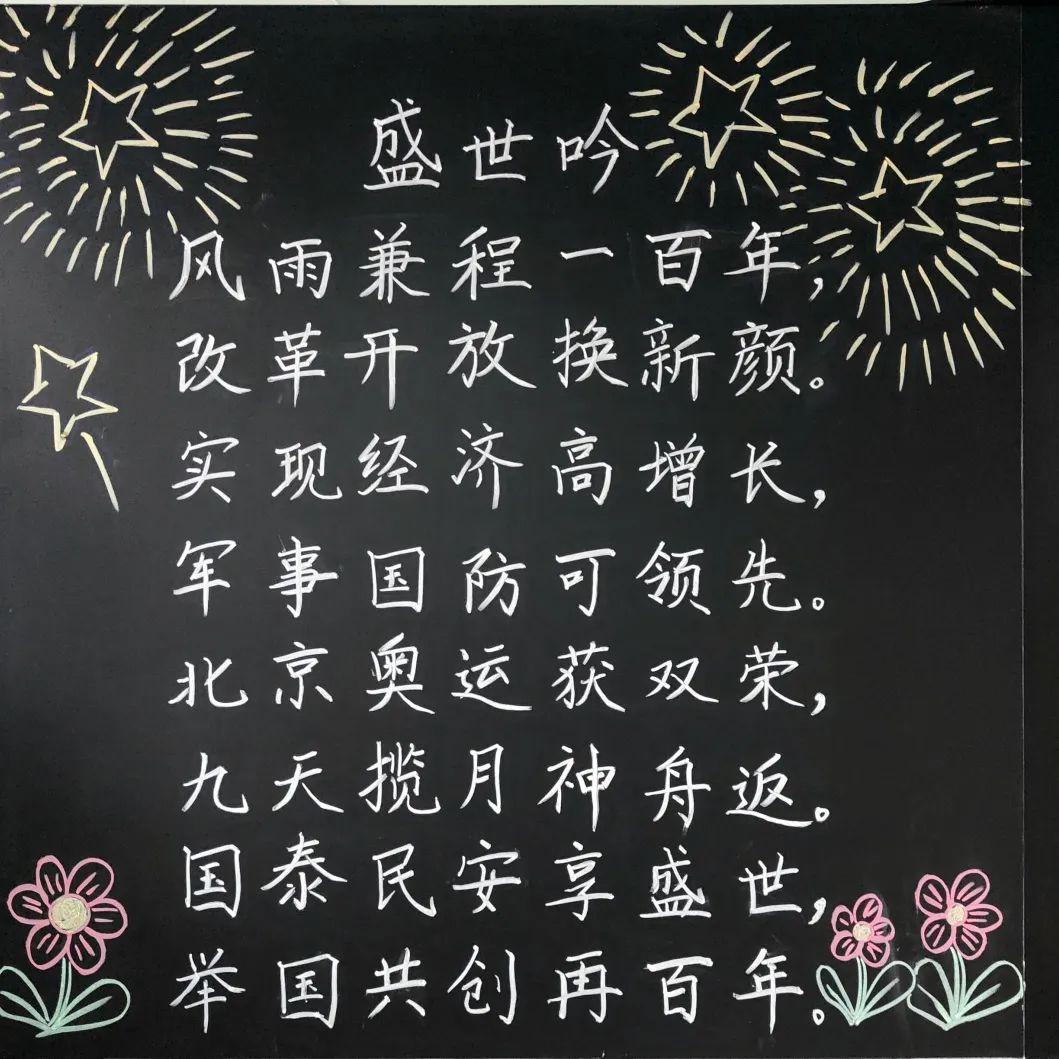 盛世吟
风雨兼程一百年，
改革开放换新颜。
实现经济高增长，
军事国防可领先。
北京奥运获双荣，
九天揽月神舟返。
国泰民安享盛世，
举国共创再百年。